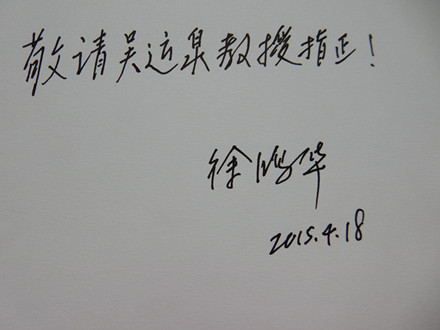 敬请吴远泉教授指正！
徐鸿华
2015.4.18